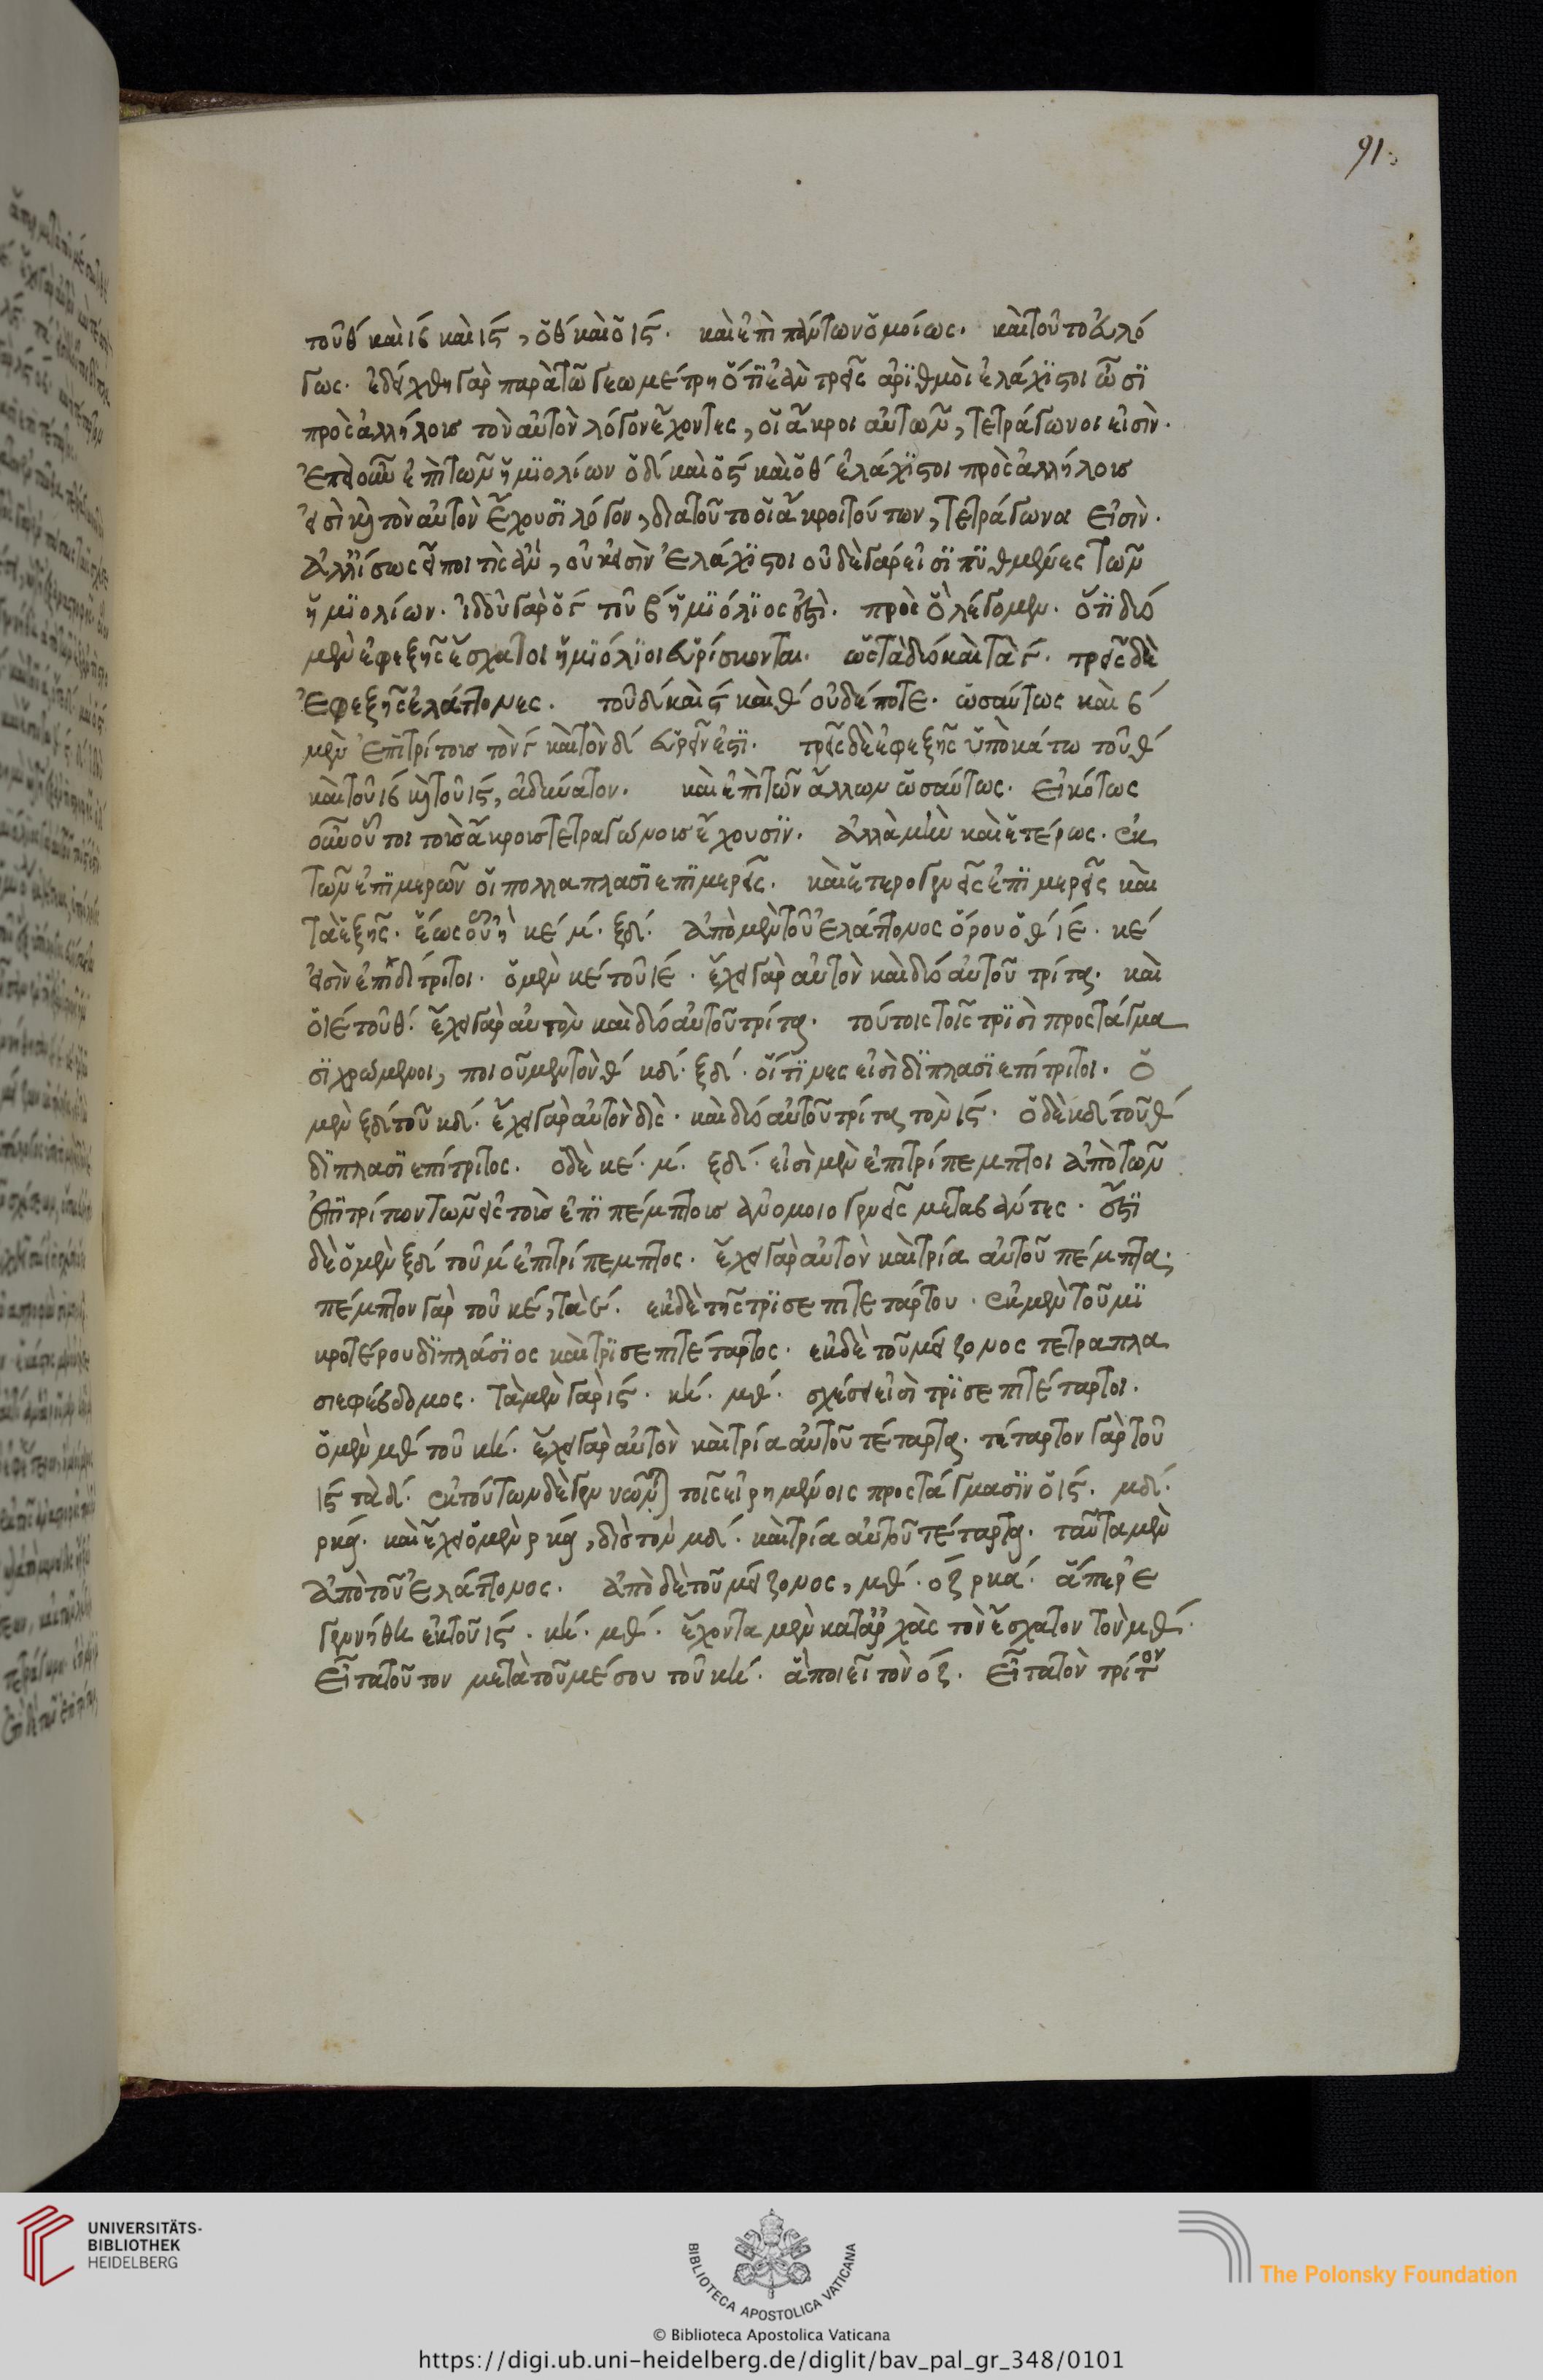 91
τοῦ θ´ καὶ ιβ καὶ ις, ὁ θ´ καὶ ὁ ις. καὶ ἐπὶ πάντων ὁμοίως. καὶ τοῦτο εὐλό
γως. ἐδείχθη γὰρ παρὰ τῶ γεωμέτρη ὅτι ἐὰν τρεῖς ἀριθμοὶ ἐλάχιστοι ὦσι
πρὸς ἀλλήλοις τὸν αὐτὸν λόγον ἔχοντες, οἱ ἄκροι αὐτῶν, τετράγωνοι εἰσίν.
ἐπεὶ οὖν ἐπὶ τῶν ἡμιολίων ὁ δ´ καὶ ὁ ς´ καὶ ὁ θ´ ἐλάχιστοι πρὸς ἀλλήλοις
εἰσὶ καὶ τὸν αὐτὸν ἔχουσι λόγον, διατοῦτο οἱ ἄκροι τούτων, τετράγωνα εἰσίν.
ἀλλ' ἴσως εἴποι τὶς ἂν, οὐκ εἰσὶν ἐλάχιστοι οὐδὲ γάρ εἰσι πυθμένες τῶν
ἡμιολίων. ἰδοὺ γὰρ ὁ γ τοῦ β´ ἡμιόλιος ἐστί. πρὸς ὃ λέγομεν. ὅτι δύο
μὲν ἐφεξῆς ἔσχατοι ἡμιόλιοι εὑρίσκονται. ὡς τὰ δύο καὶ τὰ γ. τρεῖς δὲ
ἐφεξῆς ἐλάττονες. τοῦ δ´ καὶ ς καὶ θ´ οὐδέποτε. ὡσαύτως καὶ β´
μὲν ἐπιτρίτοις τὸν γ καὶ τὸν δ´ εὑρεῖν ἐστι. τρεῖς δὲ ἐφεξῆς ὑποκάτω τοῦ θ´
καὶ τοῦ ιβ καὶ τοῦ ις, ἀδύνατον. καὶ ἐπὶ τῶν ἄλλων ὡσαύτως. εἰκότως
οὖν οὗτοι τοὺς ἄκροις τετραγώνοις ἔχουσιν. ἀλλὰ μὴν καὶ ἑτέρως. ἐκ
τῶν ἐπιμερῶν οἱ πολλαπλασιεπιμερεῖς. καὶ ἑτερογενεῖς ἐπιμερεῖς καὶ
τὰ ἑξῆς. ἕως οὗ ἢ κε´ μ´. ξδ´. ἀπὸ μὲν τοῦ ἐλάττονος ὅρου ὁ θ´ ιε´. κε´
εἰσὶν ἐπιδίτριτοι. ὁ μὲν κε´ τοῦ ιε´. ἔχει γὰρ αὐτὸν καὶ δύο αὐτοῦ τρίτα. καὶ
ὁ ιε´ τοῦ θ´. ἔχει γὰρ αὐτὸν καὶ δύο αὐτοῦ τρίτα. τούτοις τοῖς τρισὶ προστάγμα
σι χρώμενοι, ποιοῦμεν τὸν θ´ κδ´. ξδ´. οἵτινες εἰσὶ διπλασιεπίτριτοι. ὁ
μὲν ξδ´ τοῦ κδ´. ἔχει γὰρ αὐτὸν δὶς. καὶ δύο αὐτοῦ τρίτα τὸν ις. ὁ δὲ κδ´ τοῦ θ´
διπλασιεπίτριτος. ὁ δὲ κε´. μ´. ξδ´. εἰσὶ μὲν ἐπιτρίπεμπτοι ἀπὸ τῶν
ἐπιτρίτων τῶν εἰς τοὺς ἐπιπέμπτοις ἀνομοιογενεῖς μεταβάντες. ἔστι
δὲ ὁ μὲν ξδ´ τοῦ μ´ ἐπιτρίπεμπτος. ἔχει γὰρ αὐτὸν καὶ τρία αὐτοῦ πέμπτα.
πέμπτον γὰρ τοῦ κε´, τὰ ε´. ἐκ δὲ τῆς τρισεπιτετάρτου. ἐκ μὲν τοῦ μι
κροτέρου διπλάσιος καὶ τρισεπιτέταρτος. ἐκ δὲ τοῦ μείζονος τετραπλα
σιεφέβδομος. τὰ μὲν γὰρ ις. κη´. μθ´. σχέσει εἰσὶ τρισεπιτέταρτοι.
ὁ μὲν μθ´ τοῦ κη´. ἔχει γὰρ αὐτὸν καὶ τρία αὐτοῦ τέταρτα. τέταρτον γὰρ τοῦ
ις τὰ δ´. ἐκ τούτων δὲ γεννῶνται τοῖς εἰρημένοις προστάγμασιν ὁ ις. μδ´.
ρκα´. καὶ ἔχει ὁ μὲν ρκα´, δὶς τὸν μδ´. καὶ τρία αὐτοῦ τέταρτα. ταῦτα μὲν
ἀπὸ τοῦ ἐλάττονος. ἀπὸ δὲ τοῦ μείζονος, μθ´. οζ ρκα´. ἅπερ ἐ
γεννήθη ἐκ τοῦ ις. κη´. μθ´. ἔχοντα μὲν κατ' ἀρχὰς τὸν ἔσχατον τὸν μθ´.
εἶτα τοῦτον μετὰ τοῦ μέσου τοῦ κη´. ἃ ποιεῖ τὸν οζ. εἶτα τὸν τρίτον
UNIVERSITÄTS-
BIBLIOTHEK
HEIDELBERG
BIBLIOTECA APOSTOLICA VATICANA
The Polonsky Foundation
© Biblioteca Apostolica Vaticana
https://digi.ub.uni-heidelberg.de/diglit/bav_pal_gr_348/0101